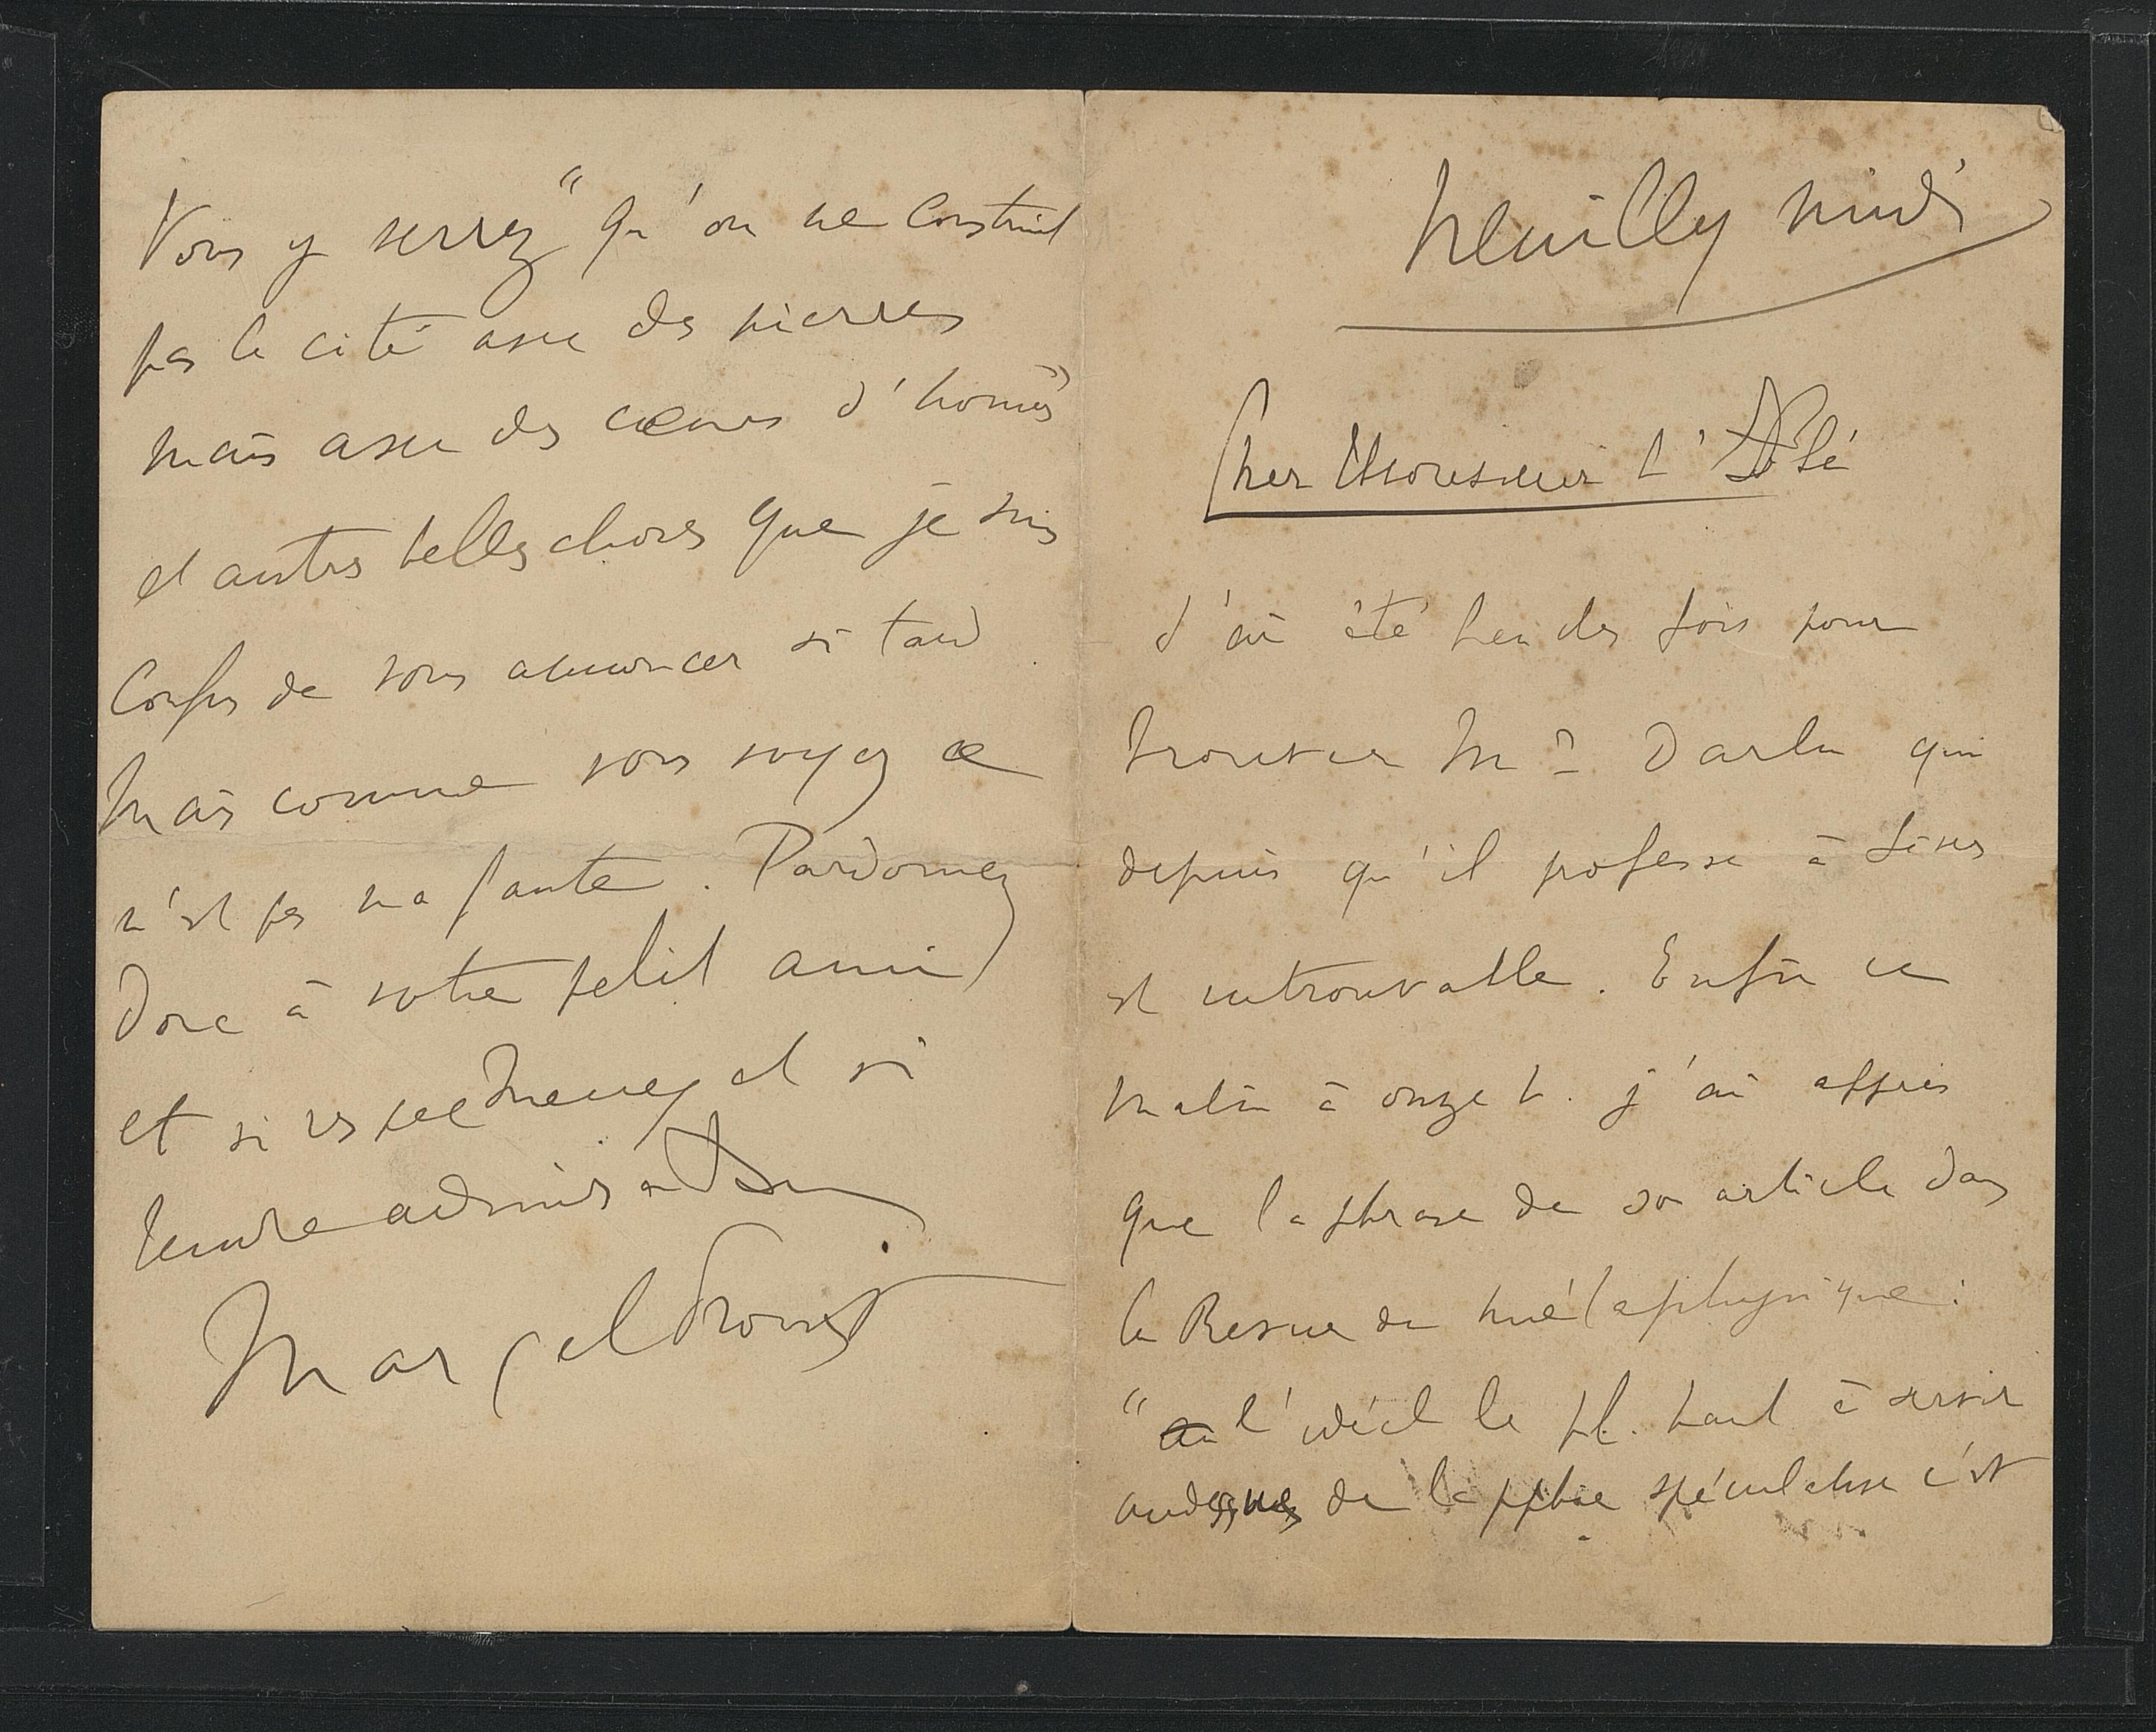 Neuilly midi
Cher Monsieur l'Abbé
J'ai été bien des fois pour
trouver Mr Darlu qui
depuis qu'il professe à Sèvres
est introuvable. Enfin ce
matin à onze h. j'ai appris
que la phrase de son article dans
la Revue de métaphysique :
" l'idéal le pl. haut à servir
au dessus de la pphie spéculative c'est
Vous y verrez "qu'on ne construit
pas la cité avec des pierres
mais avec des cœurs d'homes"
et autres belles choses que je suis
confus de vous annoncer si tard
Mais comme vous voyez ce
n'est pas ma faute. Pardonnez
donc à votre petit ami
et si respectueux et si
tendre admirateur
Marcel Proust